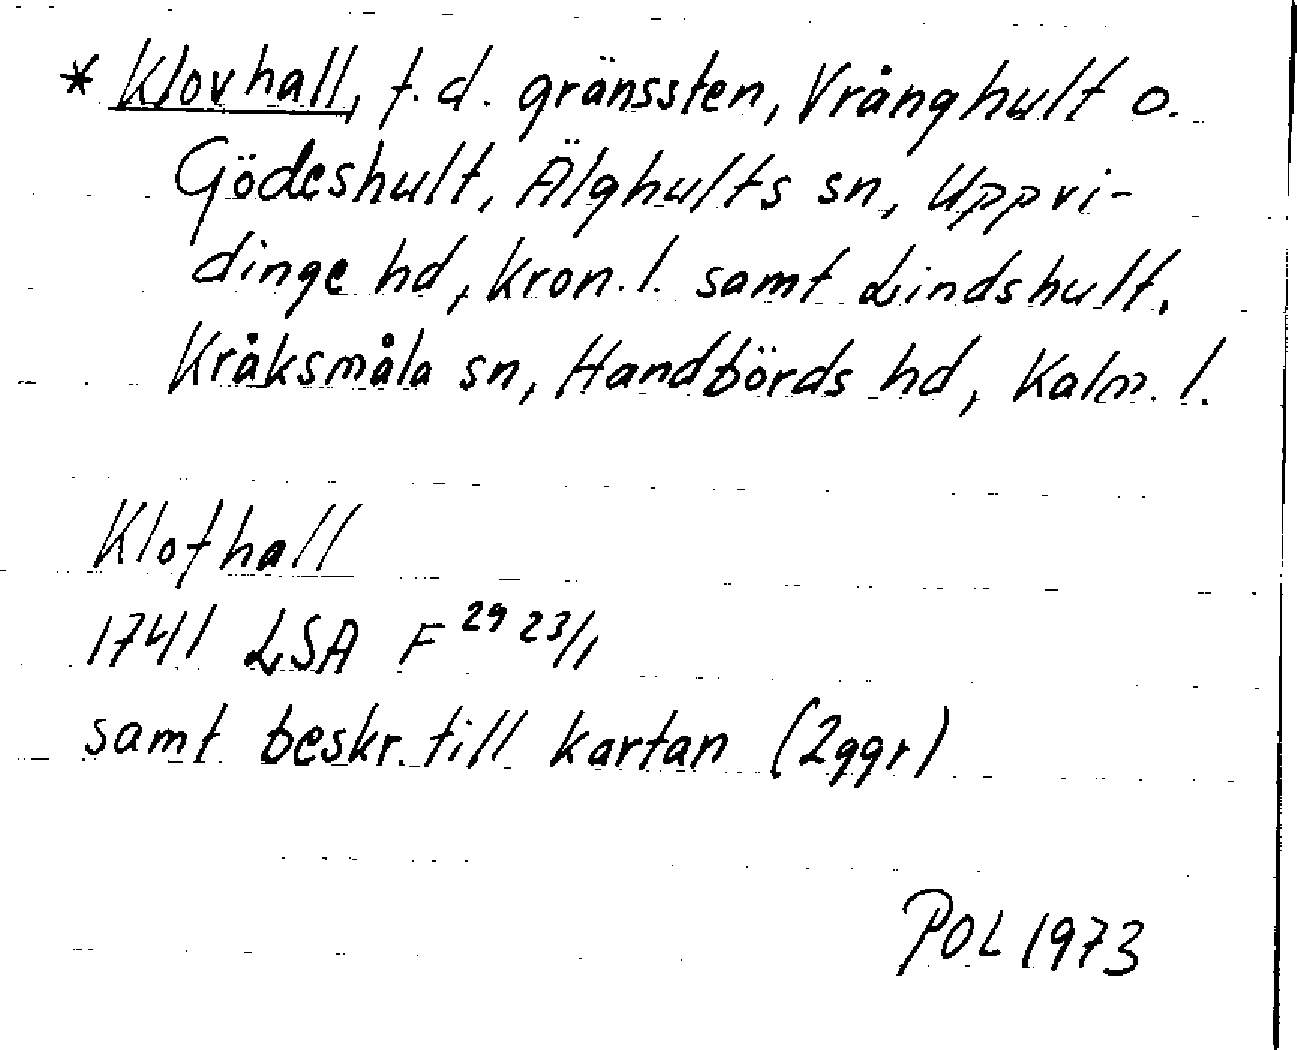 * Klovhall, f.d. gränssten, Vrånghult o.
Gödeshult, Älghults sn, Uppvi-
dinge hd, Kron.l. samt Lindshult,
Kråksmåla sn, Handbörds hd, Kalm. l.
Klofhall
1741 LSA F 29 23/1
samt beskr. till kartan (2ggr)
POL 1973